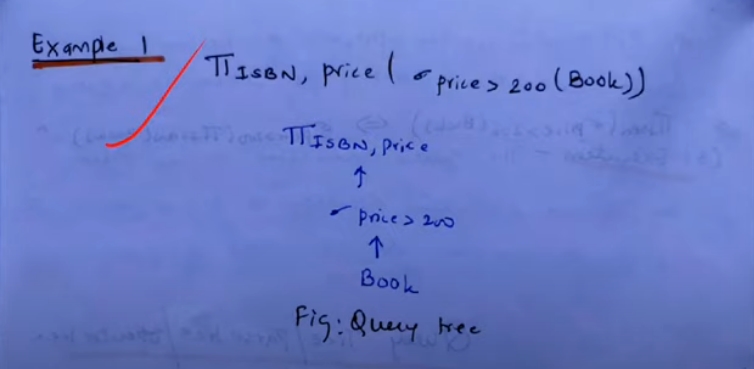 Example 1
Π ISBN, price ( σ price > 200 (Book))
Π ISBN, price
↑
σ price > 200
↑
Book
Fig: Query tree